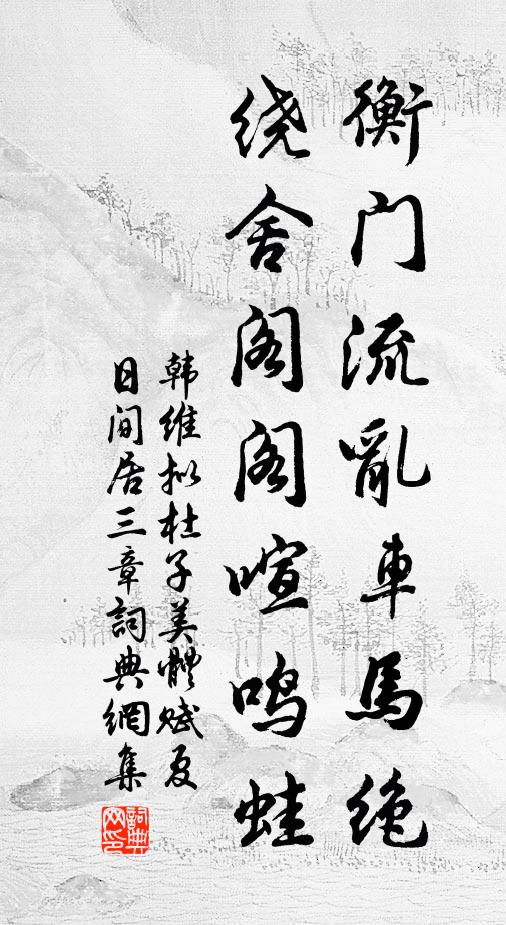 衡门流亂車馬绝
绕舍阁阁喧鸣蛙
韩维拟杜子美體赋夏
日间居三章詞典網集
詞典
网印